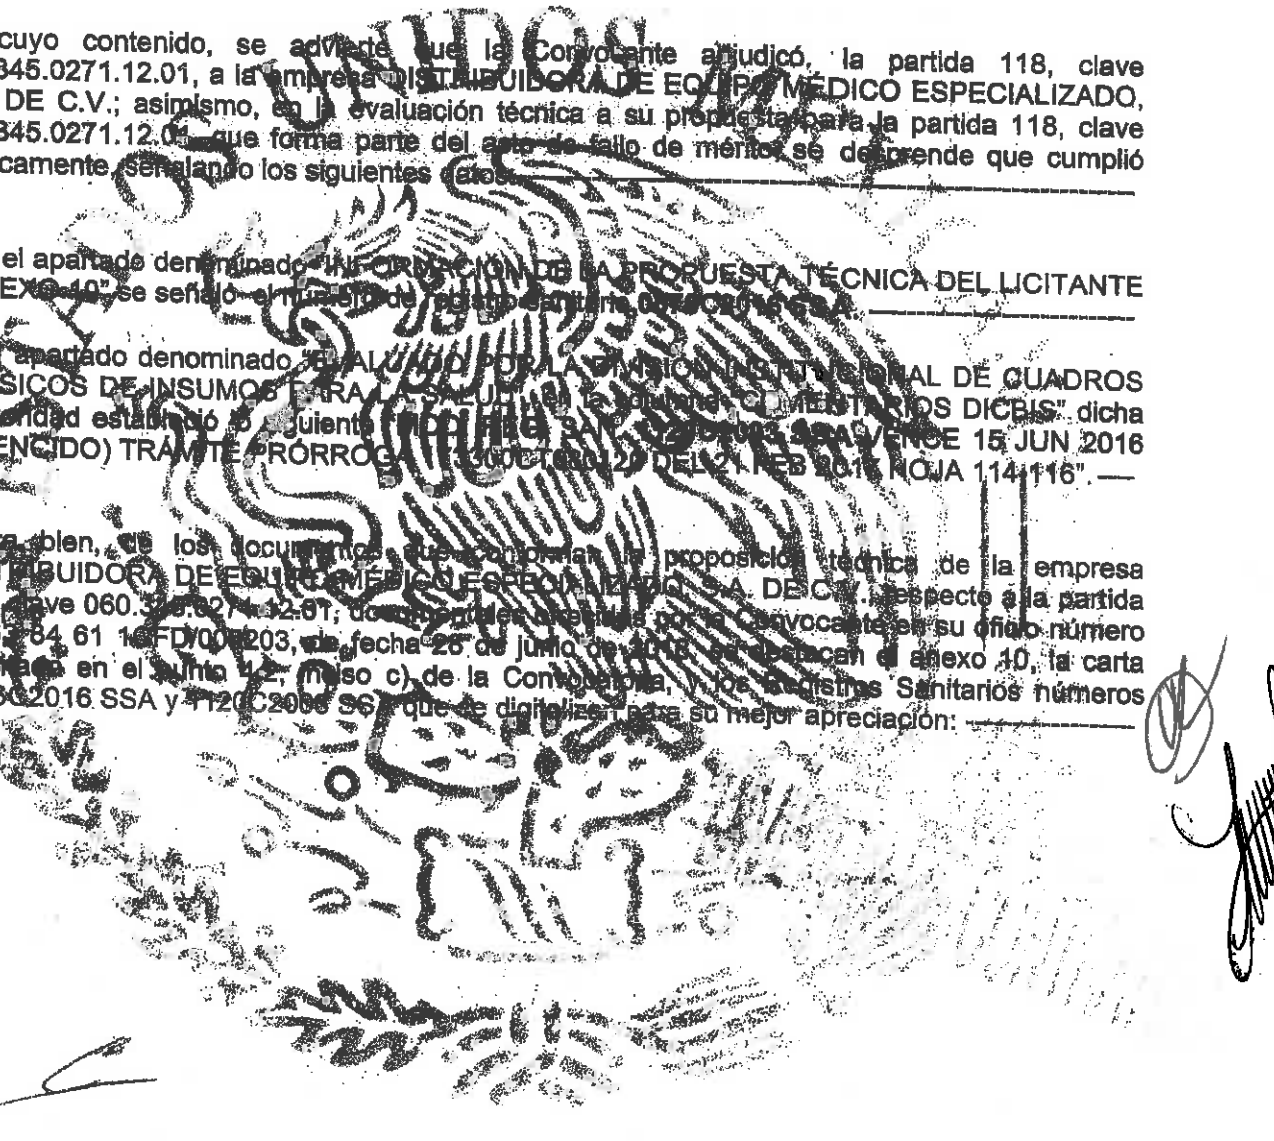 cuyo contenido, se advierte que la Convocante adjudicó, la partida 118, clave
345.0271.12.01, a la empresa DISTRIBUIDORA DE EQUIPO MÉDICO ESPECIALIZADO,
DE C.V.; asimismo, en la evaluación técnica a su propuesta para la partida 118, clave
345.0271.12.01 que forma parte del acto de fallo de mérito, se desprende que cumplió
camente, señalando los siguientes datos:
el apartado denominado "INFORMACIÓN DE LA PROPUESTA TÉCNICA DEL LICITANTE
EXO 10", se señaló el número de registro sanitario SSA
apartado denominado "EVALUADO POR LA DIVISIÓN INSTITUCIONAL DE CUADROS
SICOS DE INSUMOS PARA LA SALUD", en la columna "COMENTARIOS DICBIS" dicha
oridad estableció lo siguiente SSA VENCE 15 JUN 2016
ENCIDO) TRÁMITE PRÓRROGA DEL 21 FEB HOJA 114-116".
bien, de los documentos que conforman la proposición técnica de la empresa
TRIBUIDORA DE EQUIPO MÉDICO ESPECIALIZADO, S.A. DE C.V., respecto a la partida
clave 12.01, documentales por la Convocante en su oficio número
84 61 de fecha 26 de junio de se destacan el anexo 10, la carta
en el punto 4.2, inciso c) de la Convocatoria, y los Registros Sanitarios números
C2016 SSA y SSA que se digitalizan para su mejor apreciación:
UNIDOS